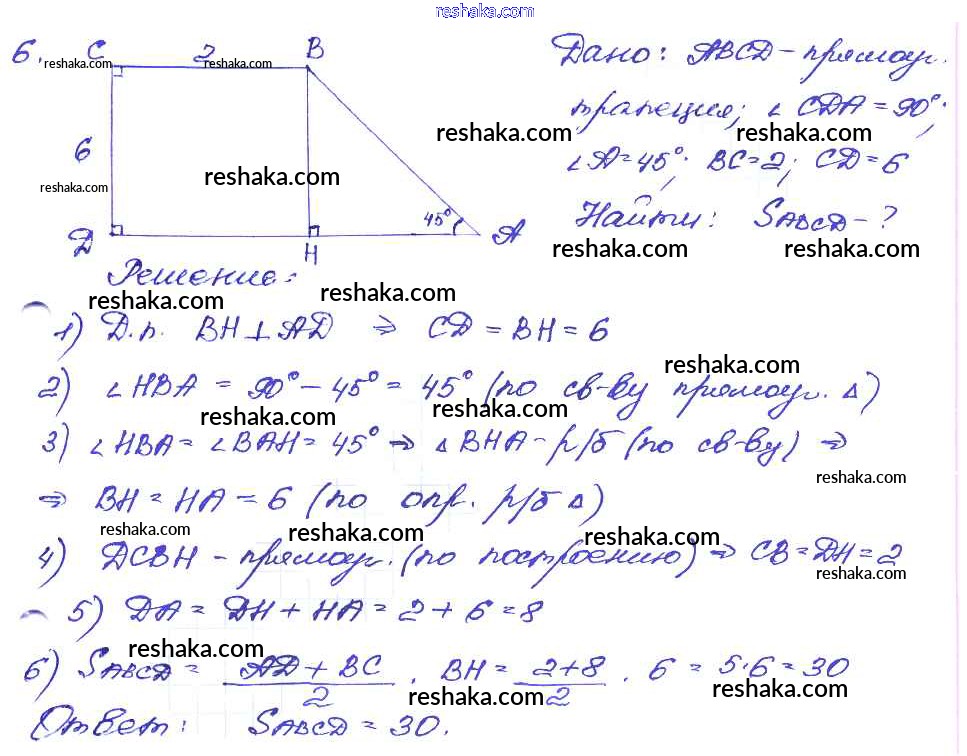 reshaka.com
6. C 2 B Дано: ABCD - прямоуг.
reshaka.com reshaka.com
трапеция; ∠ CDA = 90°;
6 reshaka.com reshaka.com
reshaka.com reshaka.com ∠A = 45°; BC = 2; CD = 6
45° Найти: SABCD - ?
D H A reshaka.com reshaka.com
Решение:
reshaka.com reshaka.com
1) Д.п. BH ⊥ AD ⇒ CD = BH = 6
reshaka.com
2) ∠ HBA = 90° - 45° = 45° (по св-ву прямоуг. Δ)
reshaka.com reshaka.com
3) ∠ HBA = ∠ BAH = 45° ⇒ Δ BHA - р/б (по св-ву) ⇒
reshaka.com
⇒ BH = HA = 6 (по опр. р/б Δ)
reshaka.com reshaka.com reshaka.com
4) DCBH - прямоуг. (по построению) ⇒ CB = DH = 2
reshaka.com
5) DA = DH + HA = 2 + 6 = 8
reshaka.com
6) SABCD = AD + BC / 2 · BH = 2+8 / 2 · 6 = 5·6 = 30
reshaka.com reshaka.com
Ответ: SABCD = 30.